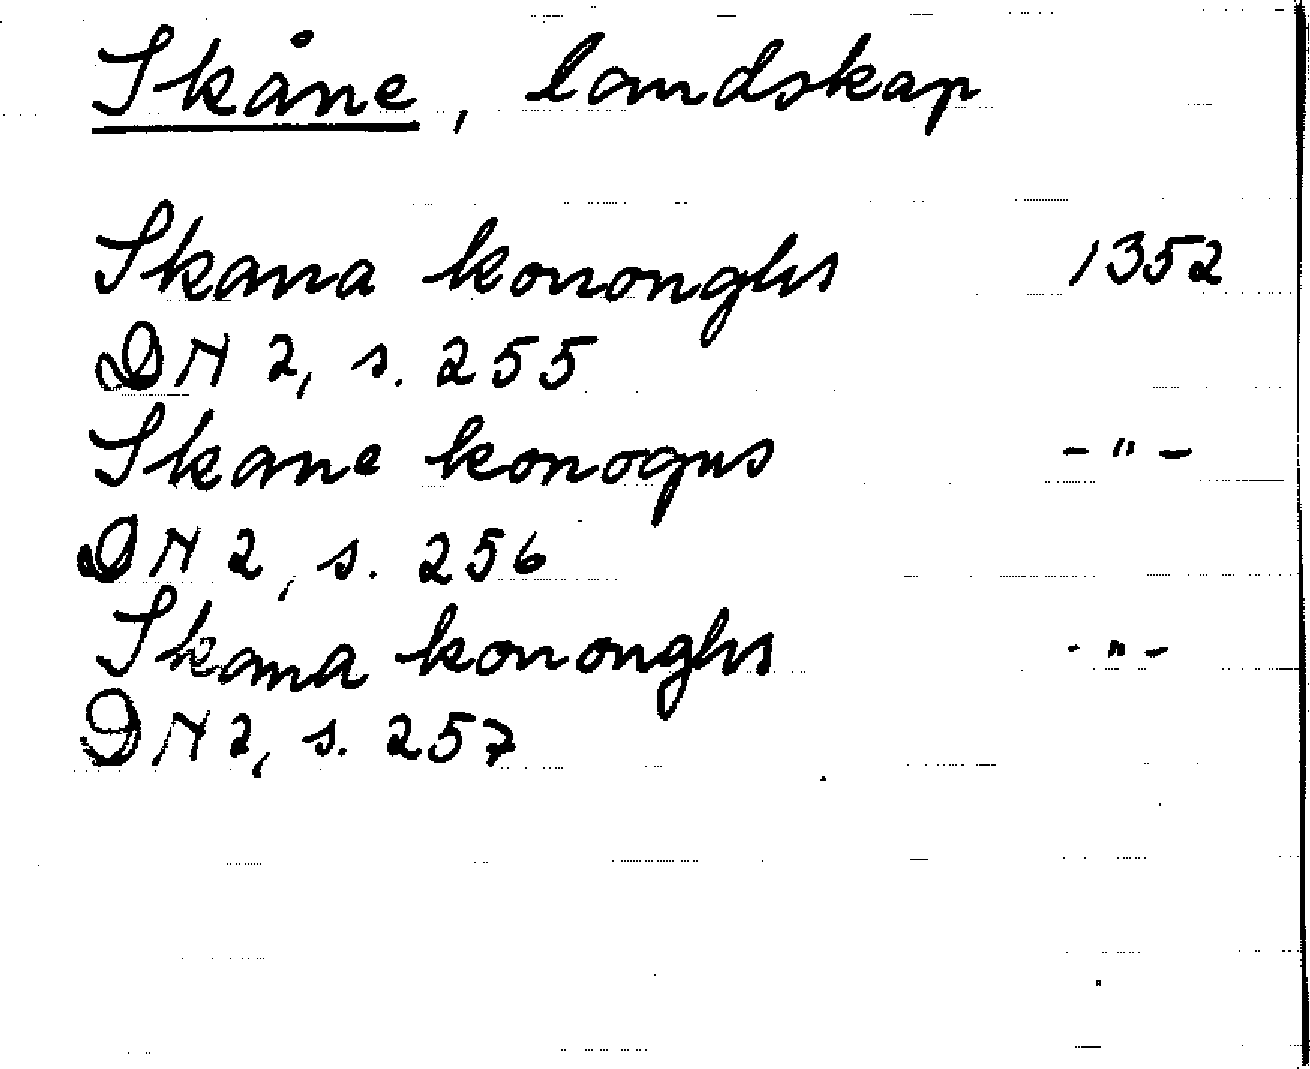 Skåne, landskap
Skana kononghs 1352
DN 2, s. 255
Skane konogus -"-
DN 2, s. 256
Skana kononghs -"-
DN 2, s. 257